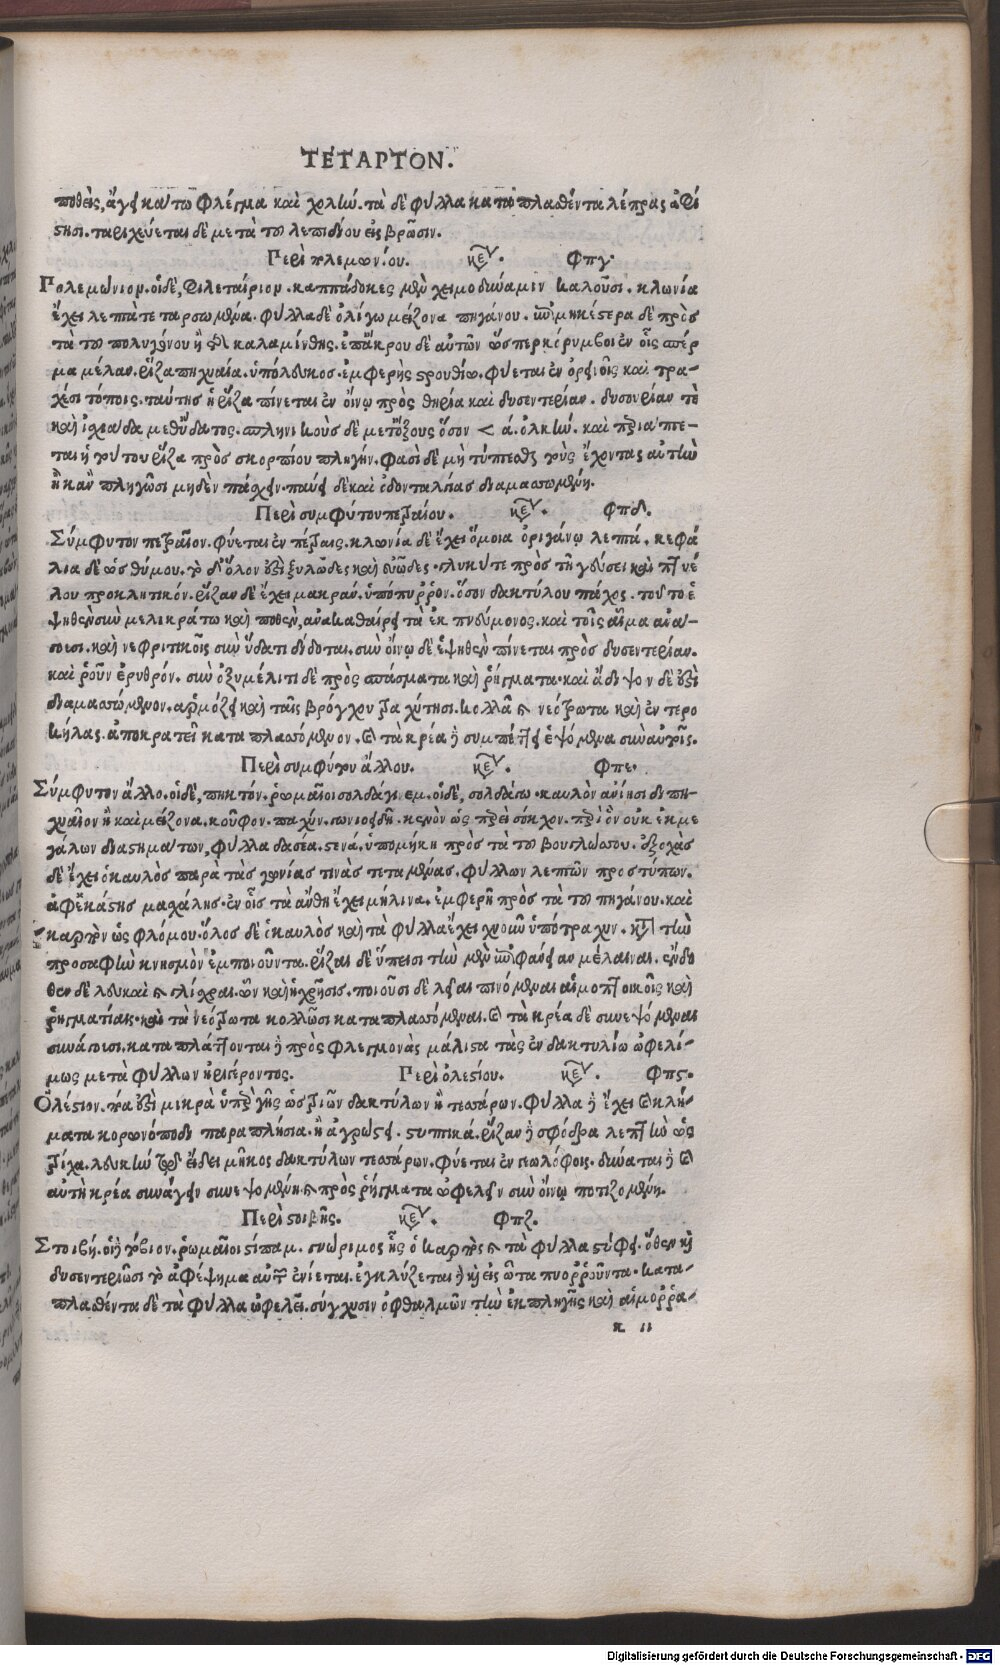 ΤΕΤΑΡΤΟΝ.
ποθεὶς, ἄγει κάτω φλέγμα καὶ χολήν. τὰ δὲ φύλλα καταπλασθέντα λέπρας ἀφί
στησι. ταριχεύεται δὲ μετὰ τοῦ λεπιδίου εἰς βρῶσιν.
Περὶ πλεμωνίου. κεφ. Φπγ.
Πολεμώνιον. οἱ δὲ, φιλεταίριον. καππάδοκες μὲν χιμοδύναμιν καλοῦσι. κλωνία
ἔχει λεπτά τε ταρσωμένα. φύλλα δὲ ὀλίγω μείζονα πηγάνου. ἐπιμηκέστερα δὲ πρὸς
τὰ τοῦ πολυγόνου ἢ καλαμίνθης. ἐπ' ἄκρου δὲ αὐτῶν ὥσπερ κόρυμβοι ἐν οἷς σπέρ
μα μέλαν. ῥίζα πηχυαία. ὑπόλευκος. ἐμφερὴς στρουθίω. φύεται ἐν ὀρεινοῖς καὶ τρα-
χέσι τόποις. ταύτης ἡ ῥίζα πίνεται ἐν οἴνῳ πρὸς θηρία καὶ δυσεντερίαν. δυσουρίαν τὲ
καὶ ἰσχιάδα μεθ' ὕδατος. σπληνικοὺς δὲ μετ' ὄξους ὅσον < ά. ὁλκήν. καὶ περιάπτε-
ται ἡ τούτου ῥίζα πρὸς σκορπίου πληγήν. φασὶ δὲ μὴ τύπτεσθαι τοὺς ἔχοντας αὐτὴν
ἢ κἂν πληγῶσι μηδὲν πάσχειν. παύει δὲ καὶ ὀδονταλγίας διαμασσωμένη.
Περὶ συμφύτου πετραίου. κεφ. Φπδ.
Σύμφυτον πετραῖον. φύεται ἐν πέτραις. κλωνία δὲ ἔχει ὅμοια ὀριγάνω λεπτά. κεφά
λια δὲ ὡς θύμου. τὸ δ' ὅλον ἐστὶ ξυλῶδες καὶ εὐῶδες. γλυκύ τε πρὸς τῇ γεύσει καὶ πτυέ
λου προκλητικόν. ῥίζαν δὲ ἔχει μακρὰν. ὑπόπυρρον. ὅσον δακτύλου πάχος. τοῦτο ἑ
ψηθὲν σὺν μελικράτω καὶ ποθὲν, ἀνακαθαίρει τὰ ἐκ πνεύμονος. καὶ τοῖς αἷμα ἀνά-
γουσι. καὶ νεφριτικοῖς σὺν ὕδατι δίδοται. σὺν οἴνω δὲ ἑψηθὲν πίνεται πρὸς δυσεντερίαν.
καὶ ῥοῦν ἐρυθρόν. σὺν ὀξυμέλιτι δὲ πρὸς σπάσματα καὶ ῥήγματα. καὶ ἄδιψον δὲ ἐστὶ
διαμασσώμενον. ἁρμόζει καὶ ταῖς βρόγχου τραχύτησι. κολλᾶ καὶ νεότρωτα καὶ ἐντερο
κήλας. ἀποκρατεῖ καταπλασσόμενον. καὶ τὰ κρέα δὲ συμπέττει ἑψόμενα σὺν αὐτοῖς.
Περὶ συμφύτου ἄλλου. κεφ. Φπε.
Σύμφυτον ἄλλο. οἱ δὲ, πηκτόν. ῥωμαῖοι σολδάγινεμ. οἱ δὲ, σολδάσω. καυλὸν ἀνίησι διπη-
χυαῖον ἢ καὶ μείζονα. κοῦφον. παχύν. γωνιοειδῆ. κενὸν ὡς περεὶ σόγχου. περὶ ὃν οὐκ ἐκ με
γάλων διαστημάτων, φύλλα δασέα. στενά. ὑπομήκη πρὸς τὰ τοῦ βουγλώσσου. ἐξοχὰς
δὲ ἔχει ὁ καυλὸς παρὰ τὰς γωνίας τινὰς τεταμένας. φύλλων λεπτῶν προστύπων.
ἀφ' ἑκάστης μασχάλης. ἐν οἷς τὰ ἄνθη ἔχει μήλινα. ἐμφερῆ πρὸς τὰ τοῦ πηγάνου. καὶ
καρπὸν ὡς φλόμου. ὅλος δὲ ὁ καυλὸς καὶ τὰ φύλλα ἔχει χνοῦν ὑπότραχυν. κατὰ τὴν
προσαφὴν κνησμὸν ἐμποιοῦντα. ῥίζαι δὲ ὕπεισι τὴν μὲν ἐπιφάνειαν μέλαιναι. ἔνδο
θεν δὲ λευκαὶ καὶ γλίσχραι. ὧν καὶ ἡ χρῆσις. ποιοῦσι δὲ λεῖαι πινόμεναι αἱμοπτοϊκοῖς καὶ
ῥηγματίαις. καὶ τὰ νεότρωτα κολλῶσι καταπλασσόμεναι. καὶ τὰ κρέα δὲ συνεψόμεναι
συνάγουσι. καταπλάττονται δὲ πρὸς φλεγμονὰς μάλιστα τὰς ἐν δακτυλίω ὠφελί-
μως μετὰ φύλλων ἠριγέροντος. Περὶ ὀλοστίου. κεφ. Φπς.
Ὀλόστιον. πόα ἐστὶ μικρὰ ὑπὲρ γῆς ὡς τριῶν δακτύλων ἢ τεσσάρων. φύλλα δὲ ἔχει καὶ κλή-
ματα κορωνόποδι παραπλήσια. ἢ ἀγρώστει. στυπτικά. ῥίζαν δὲ σφόδρα λεπτὴν ὡς
τρίχα. λευκὴν τῷ εἴδει μῆκος δακτύλων τεσσάρων. φύεται ἐν γεωλόφοις. δύναται δὲ καὶ
αὐτὴ κρέα συνάγειν συνεψομένη. καὶ πρὸς ῥήγματα ὠφελεῖν σὺν οἴνω ποτιζομένη.
Περὶ στοιβῆς. κεφ. Φπζ.
Στοιβή. οἱ δὲ στοβιον. ῥωμαῖοι στίπαμ. γνώριμος ἧς ὁ καρπὸς καὶ τὰ φύλλα στύφει. ὅθεν καὶ
δυσεντερίῶσι τὸ ἀφέψημα αὐτῆς ἐνίεται. ἐγκλύζεται δὲ καὶ εἰς ὦτα πυορροῦντα. κατα-
πλασθέντα δὲ τὰ φύλλα ὠφελεῖ. σύγχυσιν ὀφθαλμῶν τὴν ἐκ πληγῆς καὶ αἱμορρα-
κ ιι
Digitalisierung gefördert durch die Deutsche Forschungsgemeinschaft - DFG